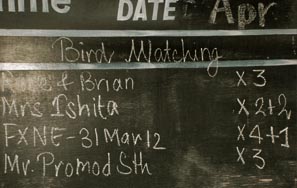 DATE Apr
Bird Watching
& Brian X 3
Mrs Ishita X 2+2
FXNE - 31 Mar 12 X 4+1
Mr. Promod Sth X 3